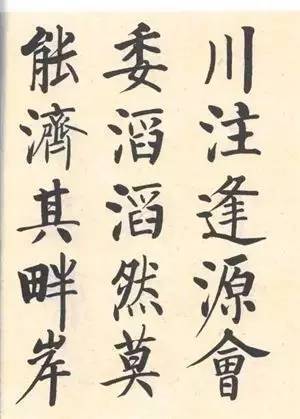 川注逢源會
委滔滔然莫
能濟其畔岸